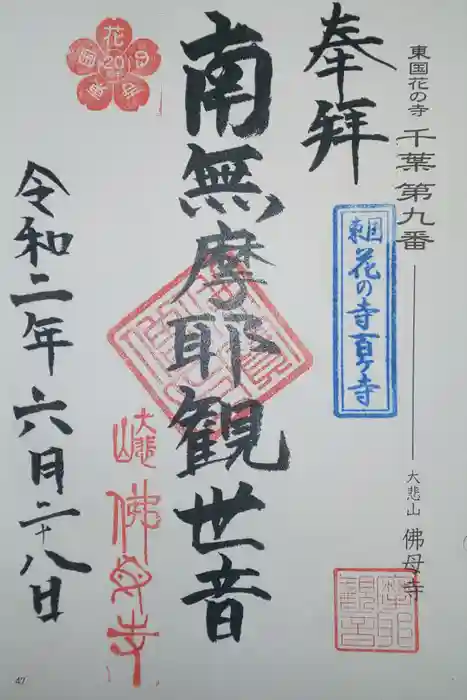 東国花の寺 千葉第九番
大悲山 佛母寺
奉拝
東国
花の寺百ヶ寺
南無摩耶観世音
大悲山
佛母寺
摩耶
観音
令和二年六月二十八日
花
20
40